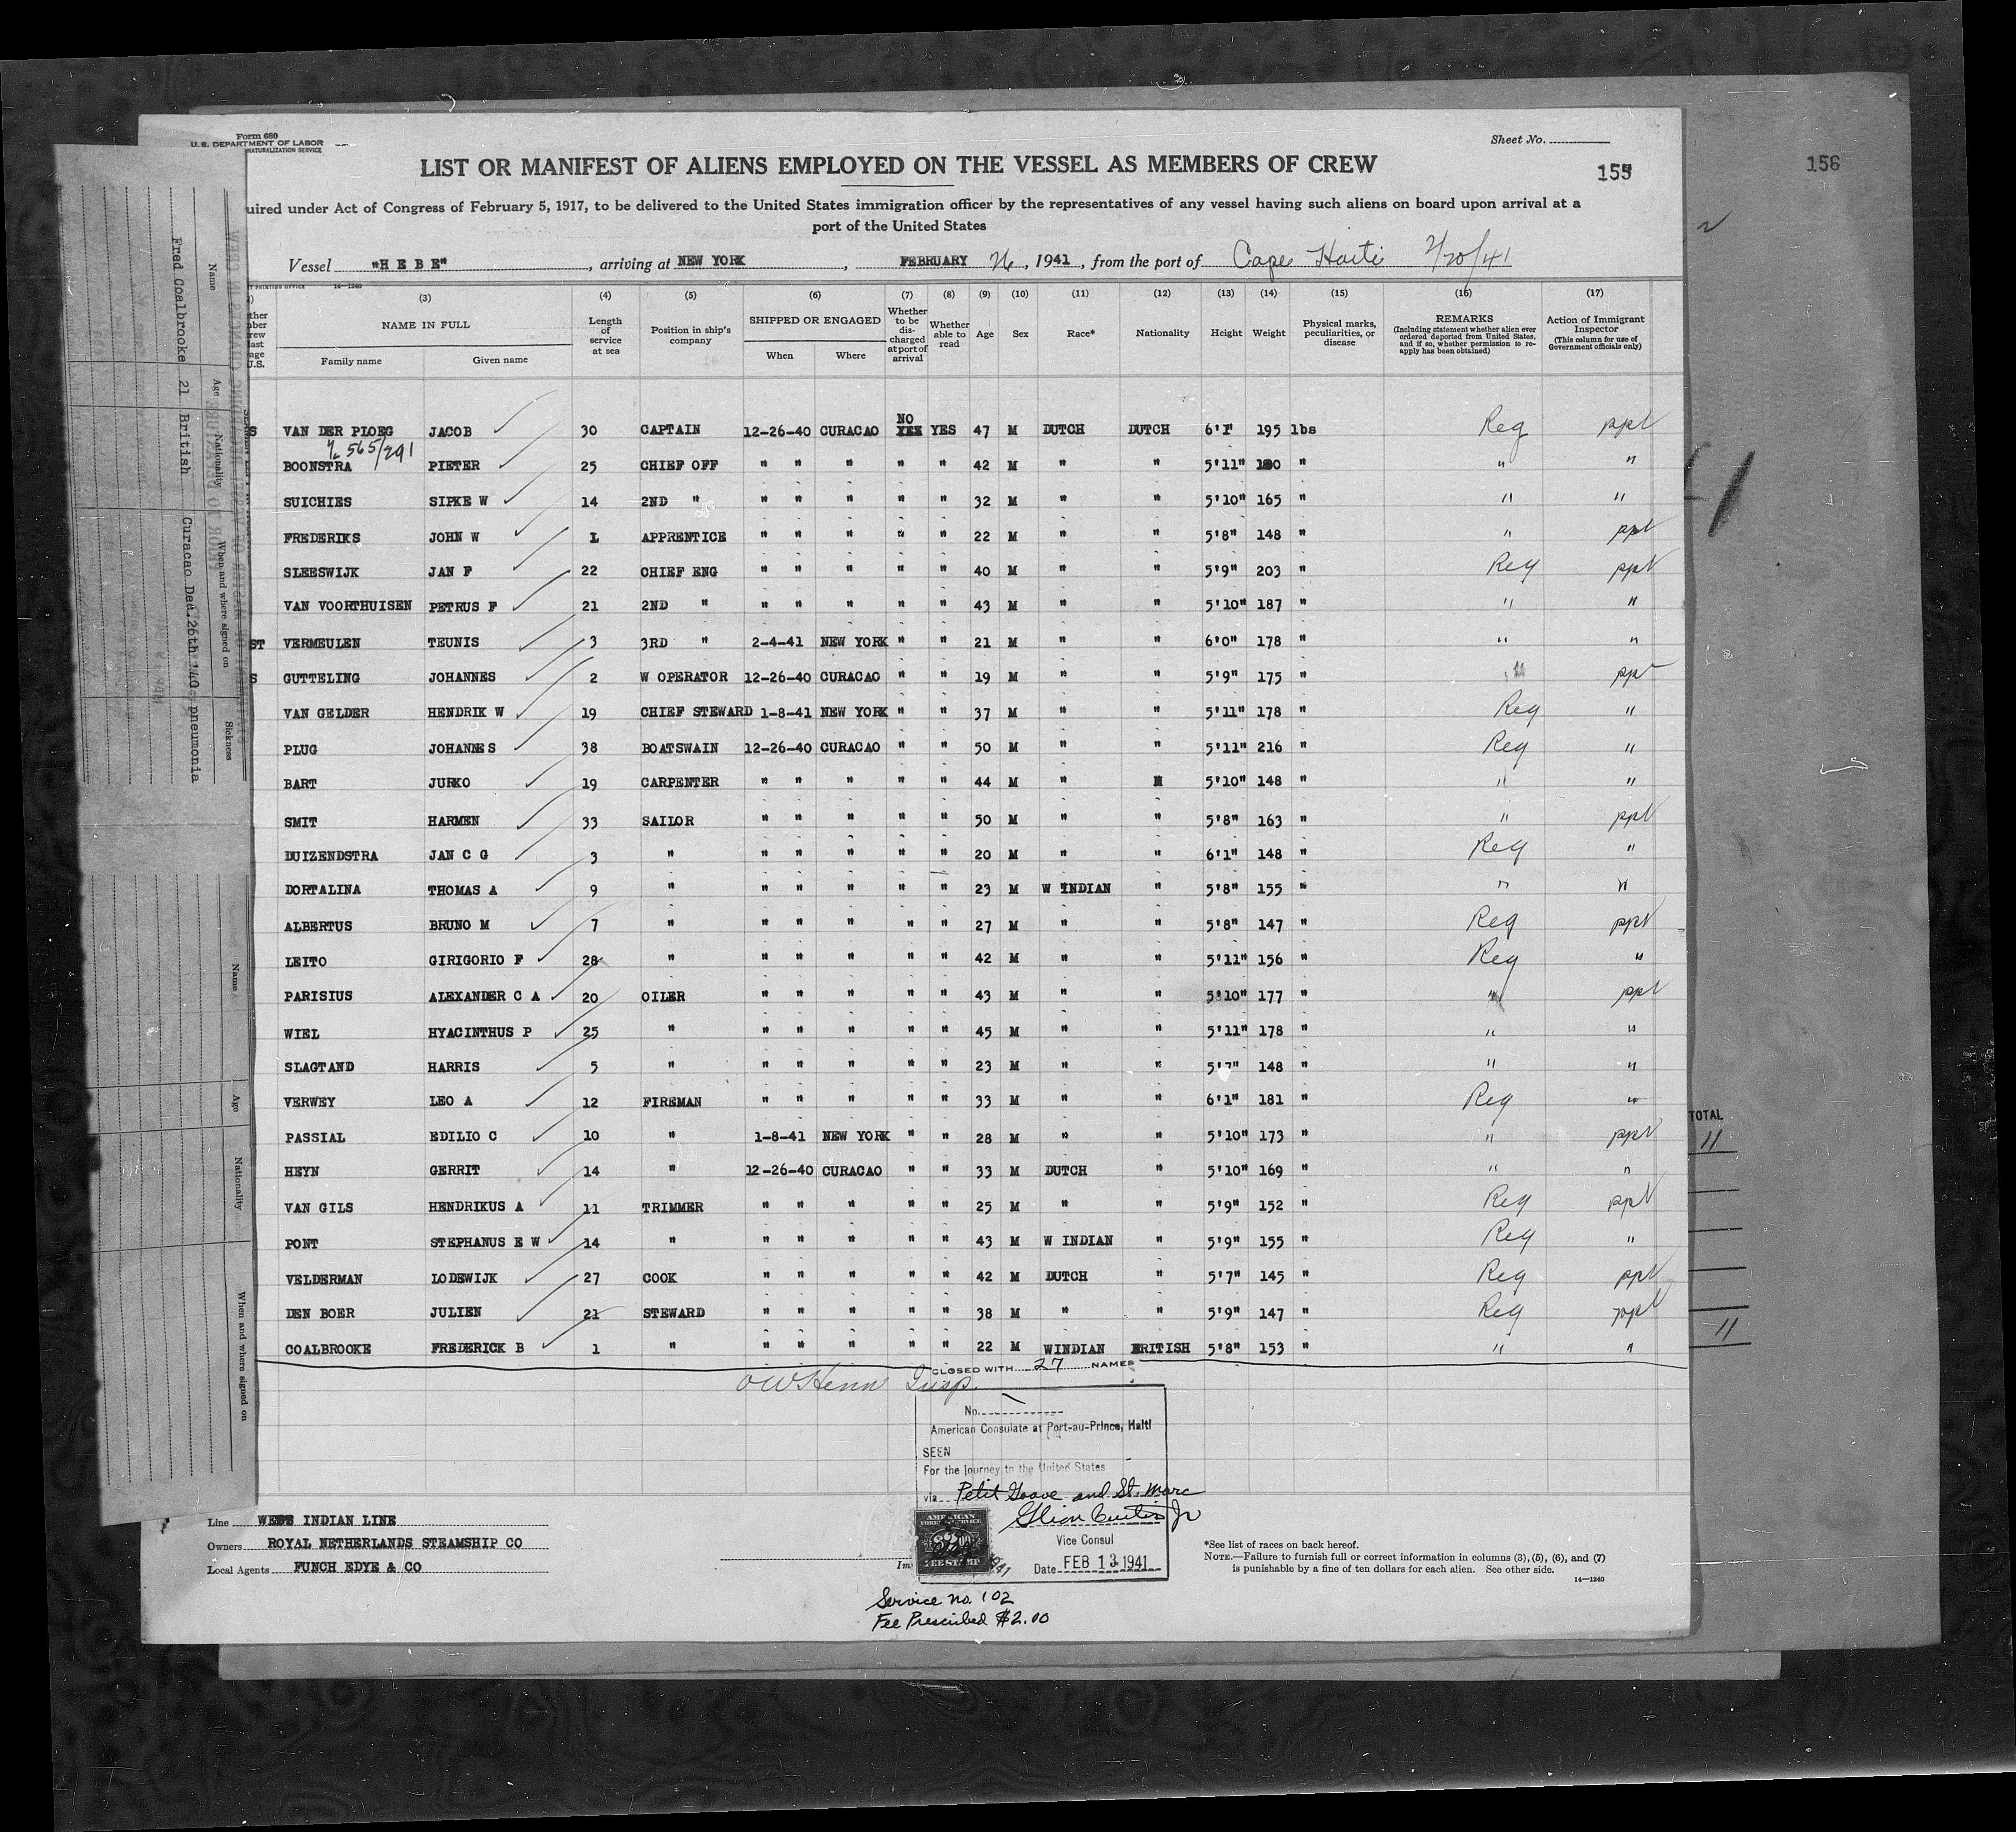 Form 680
U. S. DEPARTMENT OF LABOR
NATURALIZATION SERVICE
Sheet No.
LIST OR MANIFEST OF ALIENS EMPLOYED ON THE VESSEL AS MEMBERS OF CREW
155
156
uired under Act of Congress of February 5, 1917, to be delivered to the United States immigration officer by the representatives of any vessel having such aliens on board upon arrival at a
port of the United States
Vessel "HEBE", arriving at NEW YORK, FEBRUARY 26, 1941, from the port of Cape Haiti 2/20/41
T PRINTING OFFICE 14—1240
(3) (4) (5) (6) (7) (8) (9) (10) (11) (12) (13) (14) (15) (16) (17)
NAME IN FULL
Family name Given name
Length of service at sea
Position in ship's company
SHIPPED OR ENGAGED
When Where
Whether to be discharged at port of arrival
Whether able to read
Age Sex Race* Nationality Height Weight
Physical marks, peculiarities, or disease
REMARKS
(Including statement whether alien ever ordered deported from United States, and if so, whether permission to re-apply has been obtained)
Action of Immigrant Inspector
(This column for use of Government officials only)
S VAN DER PLOEG JACOB 30 CAPTAIN 12-26-40 CURACAO NO YES YES 47 M DUTCH DUTCH 6'1" 195 lbs Reg ppt
565/291
BOONSTRA PIETER 25 CHIEF OFF " " " " " 42 M " " 5'11" "  " "
SUICHIES SIPKE W 14 2ND " " " " " " 32 M " " 5'10" 165 " " "
FREDERIKS JOHN W 1 APPRENTICE " " " " " 22 M " " 5'8" 148 " " ppt
SLEESWIJK JAN F 22 CHIEF ENG " " " " " 40 M " " 5'9" 203 " Reg ppt
VAN VOORTHUISEN PETRUS F 21 2ND " " " " " " 43 M " " 5'10" 187 " " "
ST VERMEULEN TEUNIS 3 3RD " 2-4-41 NEW YORK " " 21 M " " 6'0" 178 " " "
S GUTTELING JOHANNES 2 W OPERATOR 12-26-40 CURACAO " " 19 M " " 5'9" 175 " " ppt
VAN GELDER HENDRIK W 19 CHIEF STEWARD 1-8-41 NEW YORK " " 37 M " " 5'11" 178 " Reg "
PLUG JOHANNES 38 BOATSWAIN 12-26-40 CURACAO " " 50 M " " 5'11" 216 " Reg "
BART JURKO 19 CARPENTER " " " " " 44 M " " 5'10" 148 " " "
SMIT HARMEN 33 SAILOR " " " " " 50 M " " 5'8" 163 " " ppt
DUIZENDSTRA JAN C G 3 " " " " " " 20 M " " 6'1" 148 " Reg "
DORTALINA THOMAS A 9 " " " " " " 23 M W INDIAN " 5'8" 155 " " "
ALBERTUS BRUNO M 7 " " " " " " 27 M " " 5'8" 147 " Reg ppt
LEITO GIRIGORIO F 28 " " " " " " 42 M " " 5'11" 156 " Reg "
PARISIUS ALEXANDER C A 20 OILER " " " " " 43 M " " 5'10" 177 " " ppt
WIEL HYACINTHUS P 25 " " " " " " 45 M " " 5'11" 178 " " "
SLAGTAND HARRIS 5 " " " " " " 23 M " " 5'7" 148 " " "
VERWEY LEO A 12 FIREMAN " " " " " 33 M " " 6'1" 181 " Reg "
PASSIAL EDILIO C 10 " 1-8-41 NEW YORK " " 28 M " " 5'10" 173 " " ppt
HEYN GERRIT 14 " 12-26-40 CURACAO " " 33 M DUTCH " 5'10" 169 " " "
VAN GILS HENDRIKUS A 11 TRIMMER " " " " " 25 M " " 5'9" 152 " Reg ppt
PONT STEPHANUS E W 14 " " " " " " 43 M W INDIAN " 5'9" 155 " Reg "
VELDERMAN LODEWIJK 27 COOK " " " " " 42 M DUTCH " 5'7" 145 " Reg ppt
DEN BOER JULIEN 21 STEWARD " " " " " 38 M " " 5'9" 147 " Reg ppt
COALBROOKE FREDERICK B 1 " " " " " " 22 M WINDIAN BRITISH 5'8" 153 " " "
CLOSED WITH 27 NAMES
Insp.
No.
American Consulate at Port-au-Prince, Haiti
SEEN
For the journey to the United States
via Petit Goave and St. Marc
Vice Consul
Date FEB 13 1941
AMERICAN
FOREIGN SERVICE
FEE STAMP
Service no. 102
Fee Prescribed $2.00
Line WEST INDIAN LINE
Owners ROYAL NETHERLANDS STEAMSHIP CO
Local Agents FUNCH EDYE & CO
*See list of races on back hereof.
NOTE.—Failure to furnish full or correct information in columns (3), (5), (6), and (7)
is punishable by a fine of ten dollars for each alien. See other side.
14—1240
TOTAL
11
11
Name Age Nationality When and where signed on Sickness
Fred Coalbrooke 21 British Curacao Dec. 26th '40 pneumonia
Name Age Nationality When and where signed on